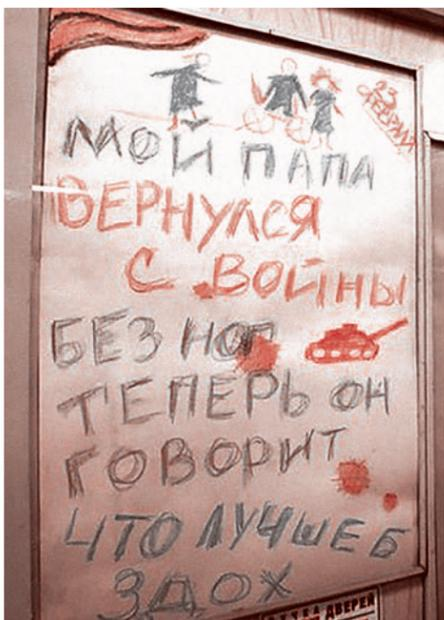 23
ФЕВРАЛЯ
МОЙ ПАПА
ВЕРНУЛСЯ
С ВОЙНЫ
БЕЗ НОГ
ТЕПЕРЬ ОН
ГОВОРИТ
ЧТО ЛУЧШЕ Б
ЗДОХ
ДВЕРЕЙ